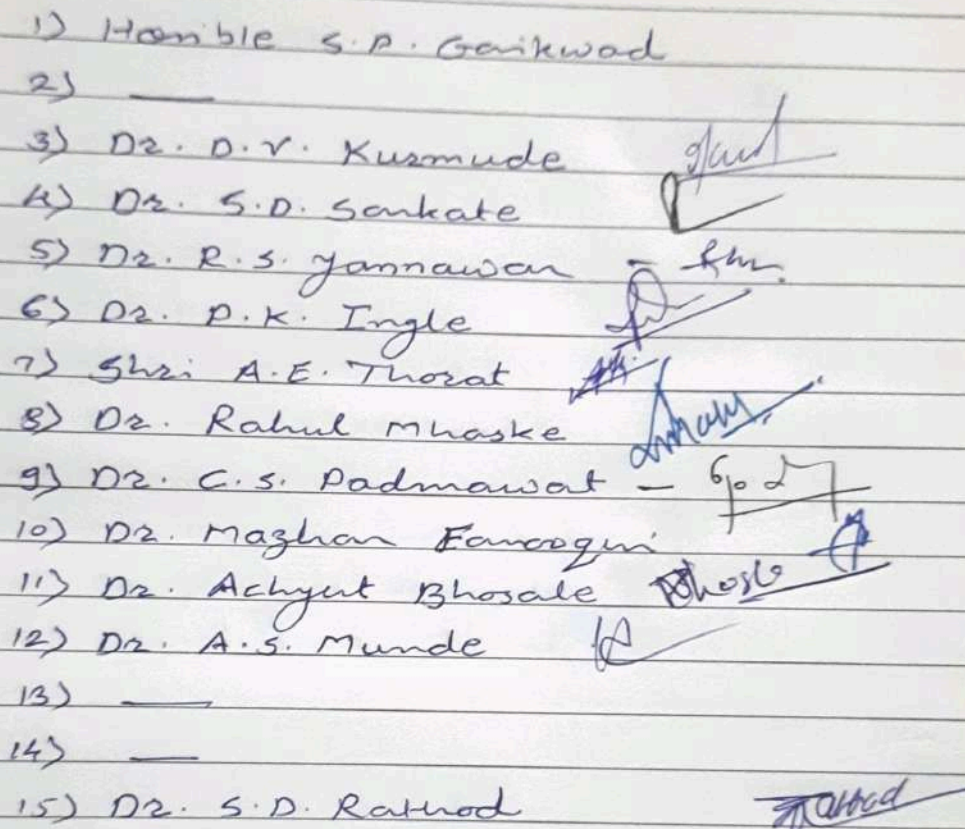 1) Hon'ble S.P. Gaikwad
2) —
3) Dr. D.V. Kurmude
4) Dr. S.D. Sankate
5) Dr. R.S. Yannawar –
6) Dr. P.K. Ingle
7) Shri A.E. Thorat
8) Dr. Rahul Mhaske
9) Dr. C.S. Padmawat –
10) Dr. Mazhar Farooqui
11) Dr. Achyut Bhosale Bhosle
12) Dr. A.S. Munde
13) —
14) —
15) Dr. S.D. Rathod